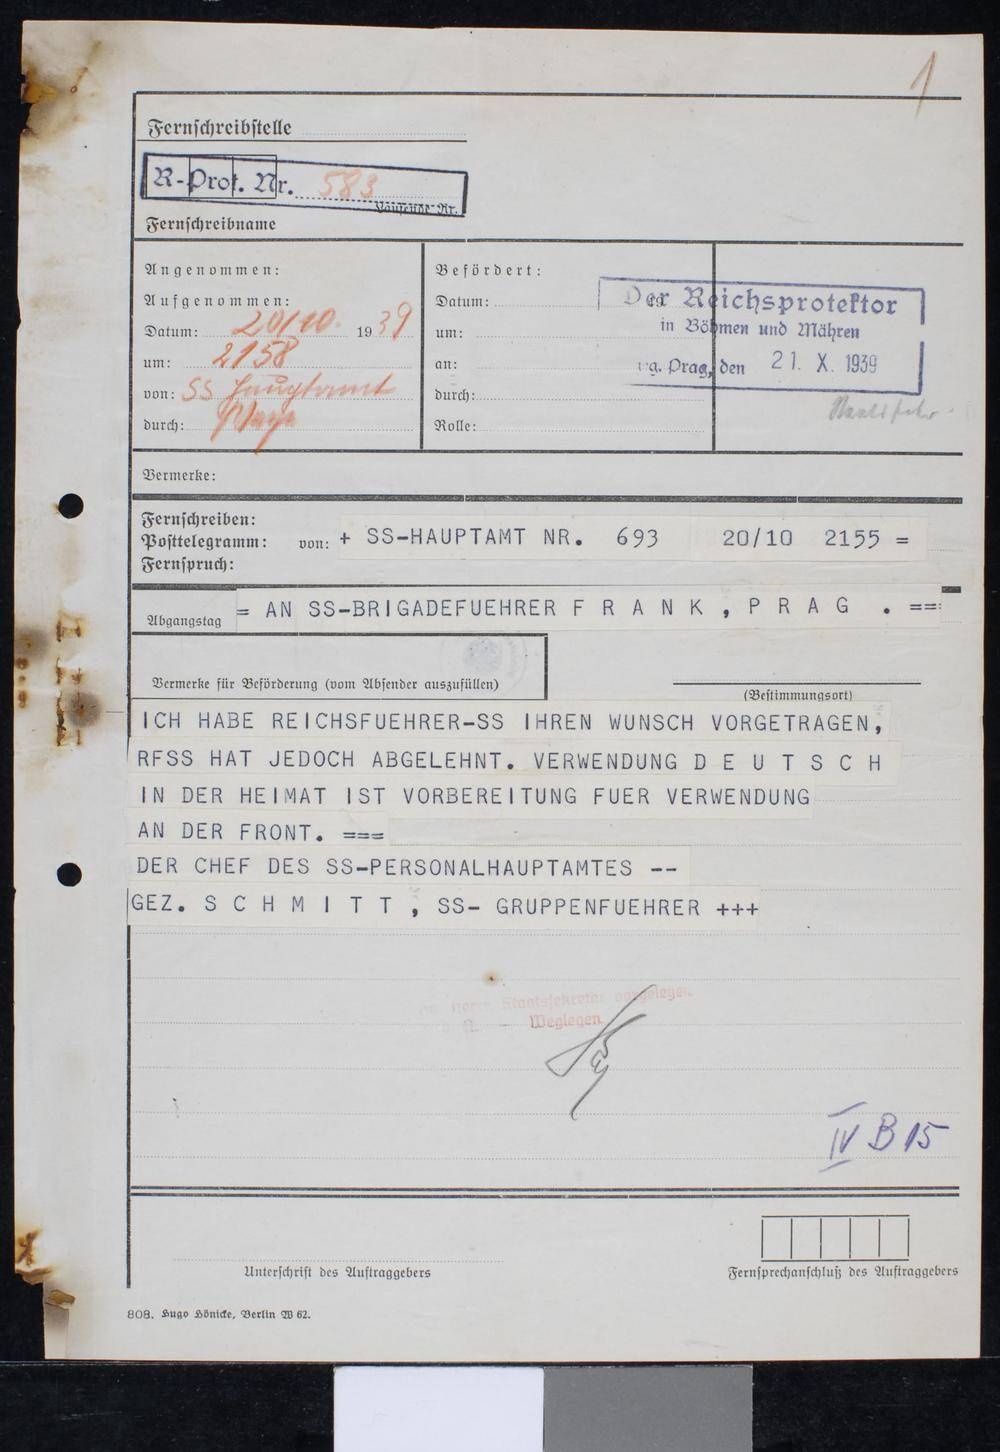 1
Fernschreibstelle
R-Prot. Nr. 583
Laufende Nr.
Fernschreibname
Angenommen:
Aufgenommen:
Datum: 20/10. 1939
um: 2158
von: SS Hauptamt
durch:
Befördert:
Datum: 19
um:
an:
durch:
Rolle:
Der Reichsprotektor
in Böhmen und Mähren
Prag, den 21. X. 1939
Vermerke:
Fernschreiben:
Posttelegramm: von: + SS-HAUPTAMT NR. 693 20/10 2155 =
Fernspruch:
Abgangstag = AN SS-BRIGADEFUEHRER F R A N K , P R A G . ==:
Vermerke für Beförderung (vom Absender auszufüllen)
(Bestimmungsort)
ICH HABE REICHSFUEHRER-SS IHREN WUNSCH VORGETRAGEN,
RFSS HAT JEDOCH ABGELEHNT. VERWENDUNG D E U T S C H
IN DER HEIMAT IST VORBEREITUNG FUER VERWENDUNG
AN DER FRONT. ===
DER CHEF DES SS-PERSONALHAUPTAMTES --
GEZ. S C H M I T T , SS- GRUPPENFUEHRER +++
Herrn Staatssekretär vorgelegen
Weglegen
IV B 15
Unterschrift des Auftraggebers
Fernsprechanschluß des Auftraggebers
808. Hugo Hönicke, Berlin W 62.